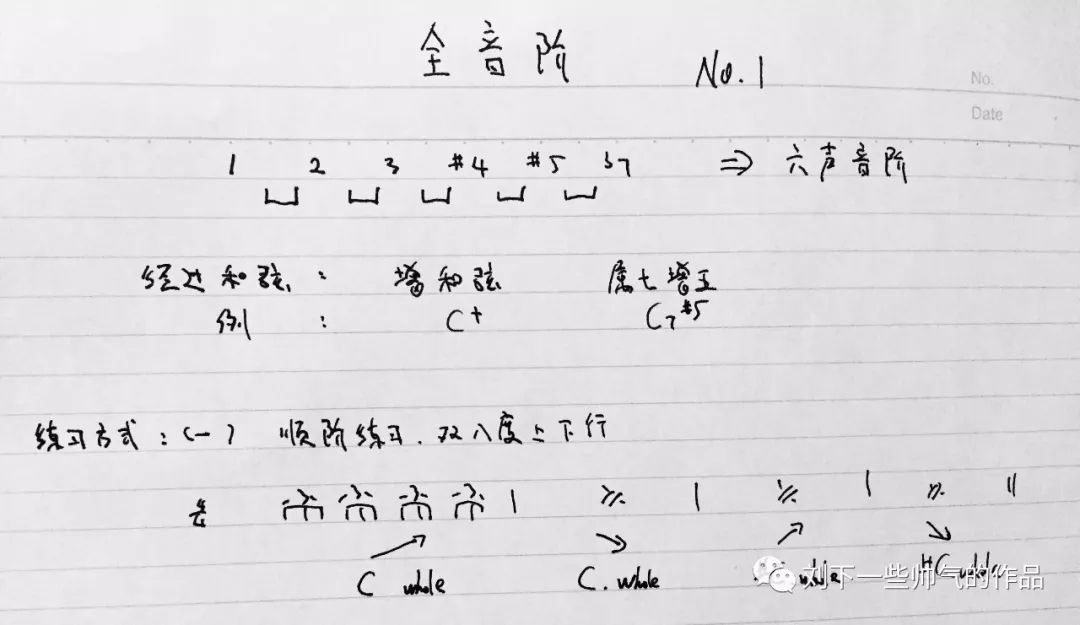 全音阶 No.1
No.
Date
1 2 3 #4 #5 b7 ⇒ 六声音阶
经过和弦: 增和弦 属七增五
例: C+ C7#5
练习方式:(一) 顺阶练习.双八度上下行
3 3 3 3 | ٪ | ٪ | ٪ ||
C whole C.whole whole #C whole
刘下一些帅气的作品